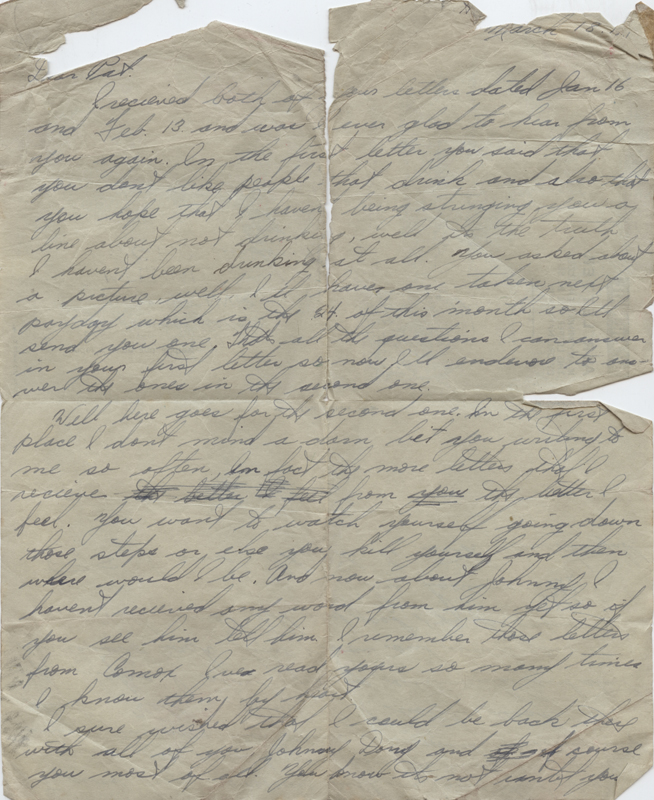 March 15
Dear Pat.
I recieved both of your letters dated Jan 16
and Feb. 13 and was ever glad to hear from
you again. In the first letter you said that
you don't like people that drink and also that
you hope that I haven't being stringing you a
line about not drinking, well its the truth
I haven't been drinking at all. You asked about
a picture, well I'll have one taken next
payday which is the of this month so I'll
send you one. Thats all the questions I can answer
in your first letter so now I'll endevore to ans-
wer the ones in the second one.
Well here goes for the second one. In the first
place I don't mind a darn bet you writing to
me so often, In fact the more letters that I
recieve from you the better I
feel. You want to watch yourself going down
those steps or else you kill yourself and then
where would I be. And now about Johnny, I
haven't recieved any word from him yet so if
you see him tell him. I remember those letters
from Comox I've read yours so many times
I know them by heart
I sure wished that I could be back there
with all of you Johnny Doug and of course
you most of all. You know its not you